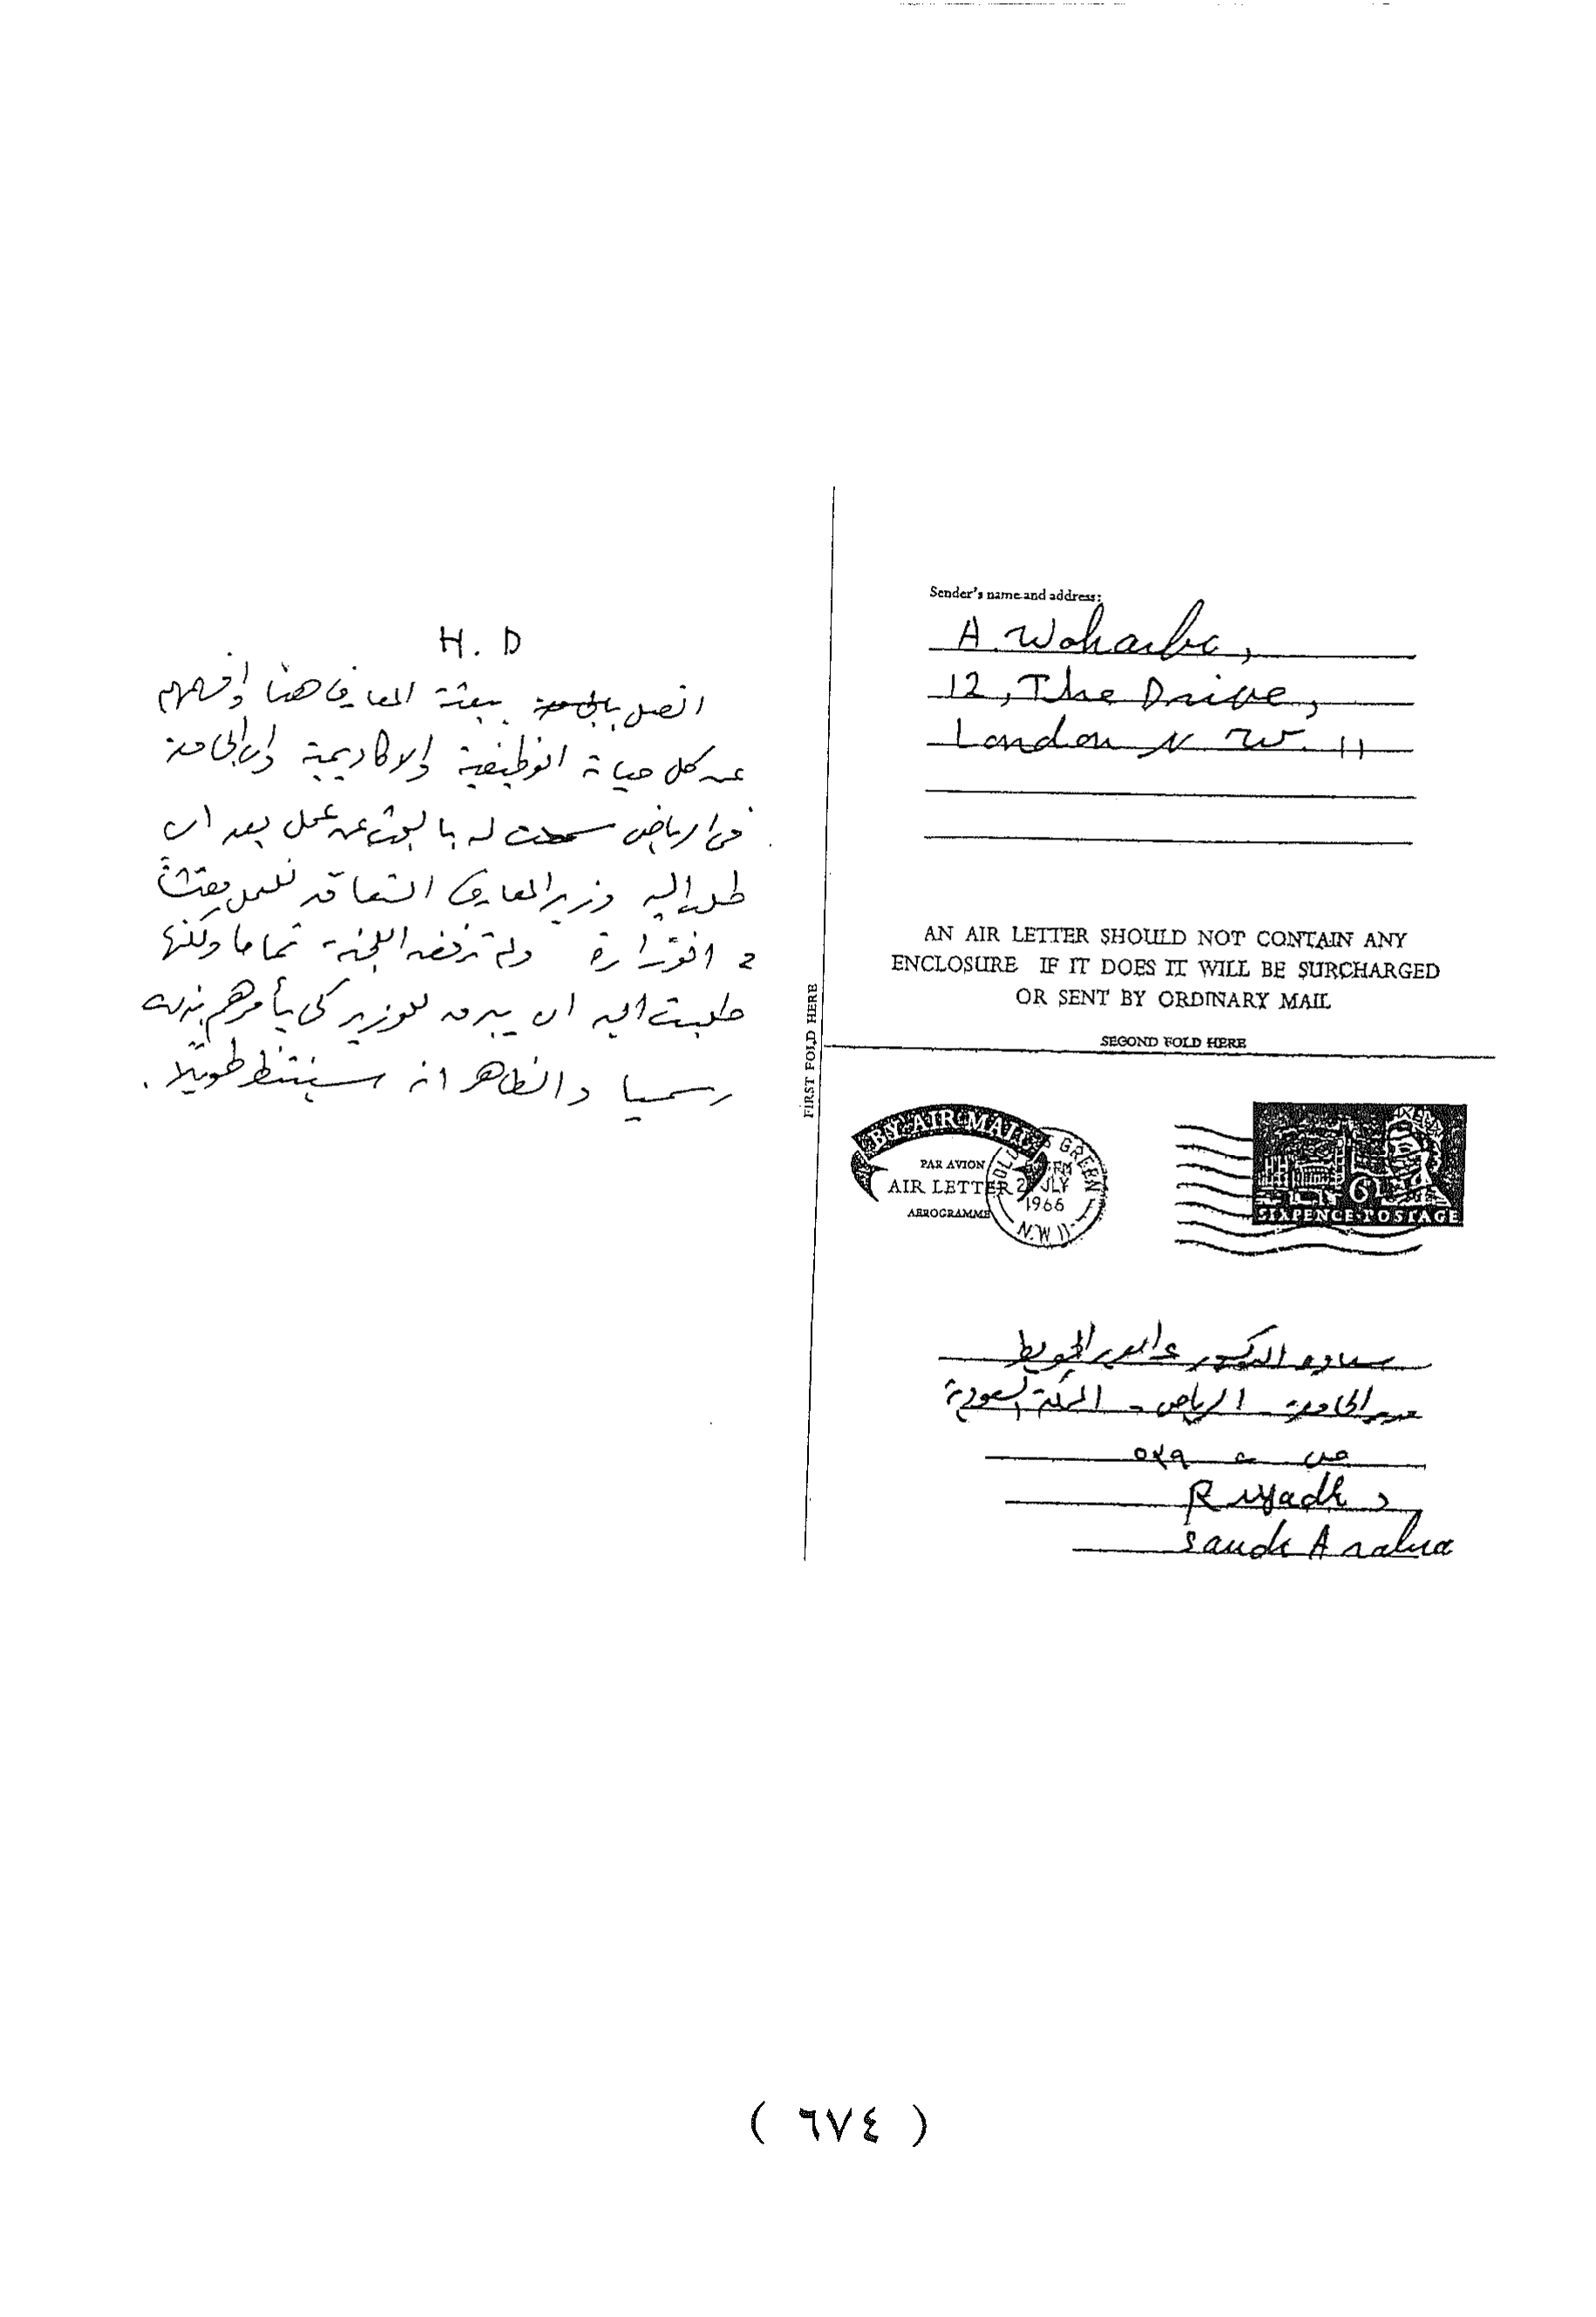 H. D
اتصل ببعثة المعارف هنا وافهمهم
عن كل حياته الوظيفية والاكاديمية وان الجامعة
في الرياض سمحت له بالبحث عن عمل بعد ان
طلب اليه وزير المعارف التعاقد للعمل مفتشاً
في الوزارة ولم ترفضه اللجنة تماما ولكنها
طلبت اليه ان يبرق للوزير كي يأمرهم بذلك
رسميا والظاهر انه سينتظر طويلاً.
Sender's name and address:
A. Wohaibi,
12, The Drive,
London N. W. 11
AN AIR LETTER SHOULD NOT CONTAIN ANY
ENCLOSURE IF IT DOES IT WILL BE SURCHARGED
OR SENT BY ORDINARY MAIL
FIRST FOLD HERE
SECOND FOLD HERE
BY AIR MAIL
PAR AVION
AIR LETTER
AEROGRAMME
GREEN
JLY
1966
N.W.11
6D
SIXPENCE POSTAGE
سعادة الدكتور عبد العزيز الخويطر
مدير الجامعة - الرياض - المملكة السعودية
ص ب
Riyadh,
Saudi Arabia
( ٦٧٤ )